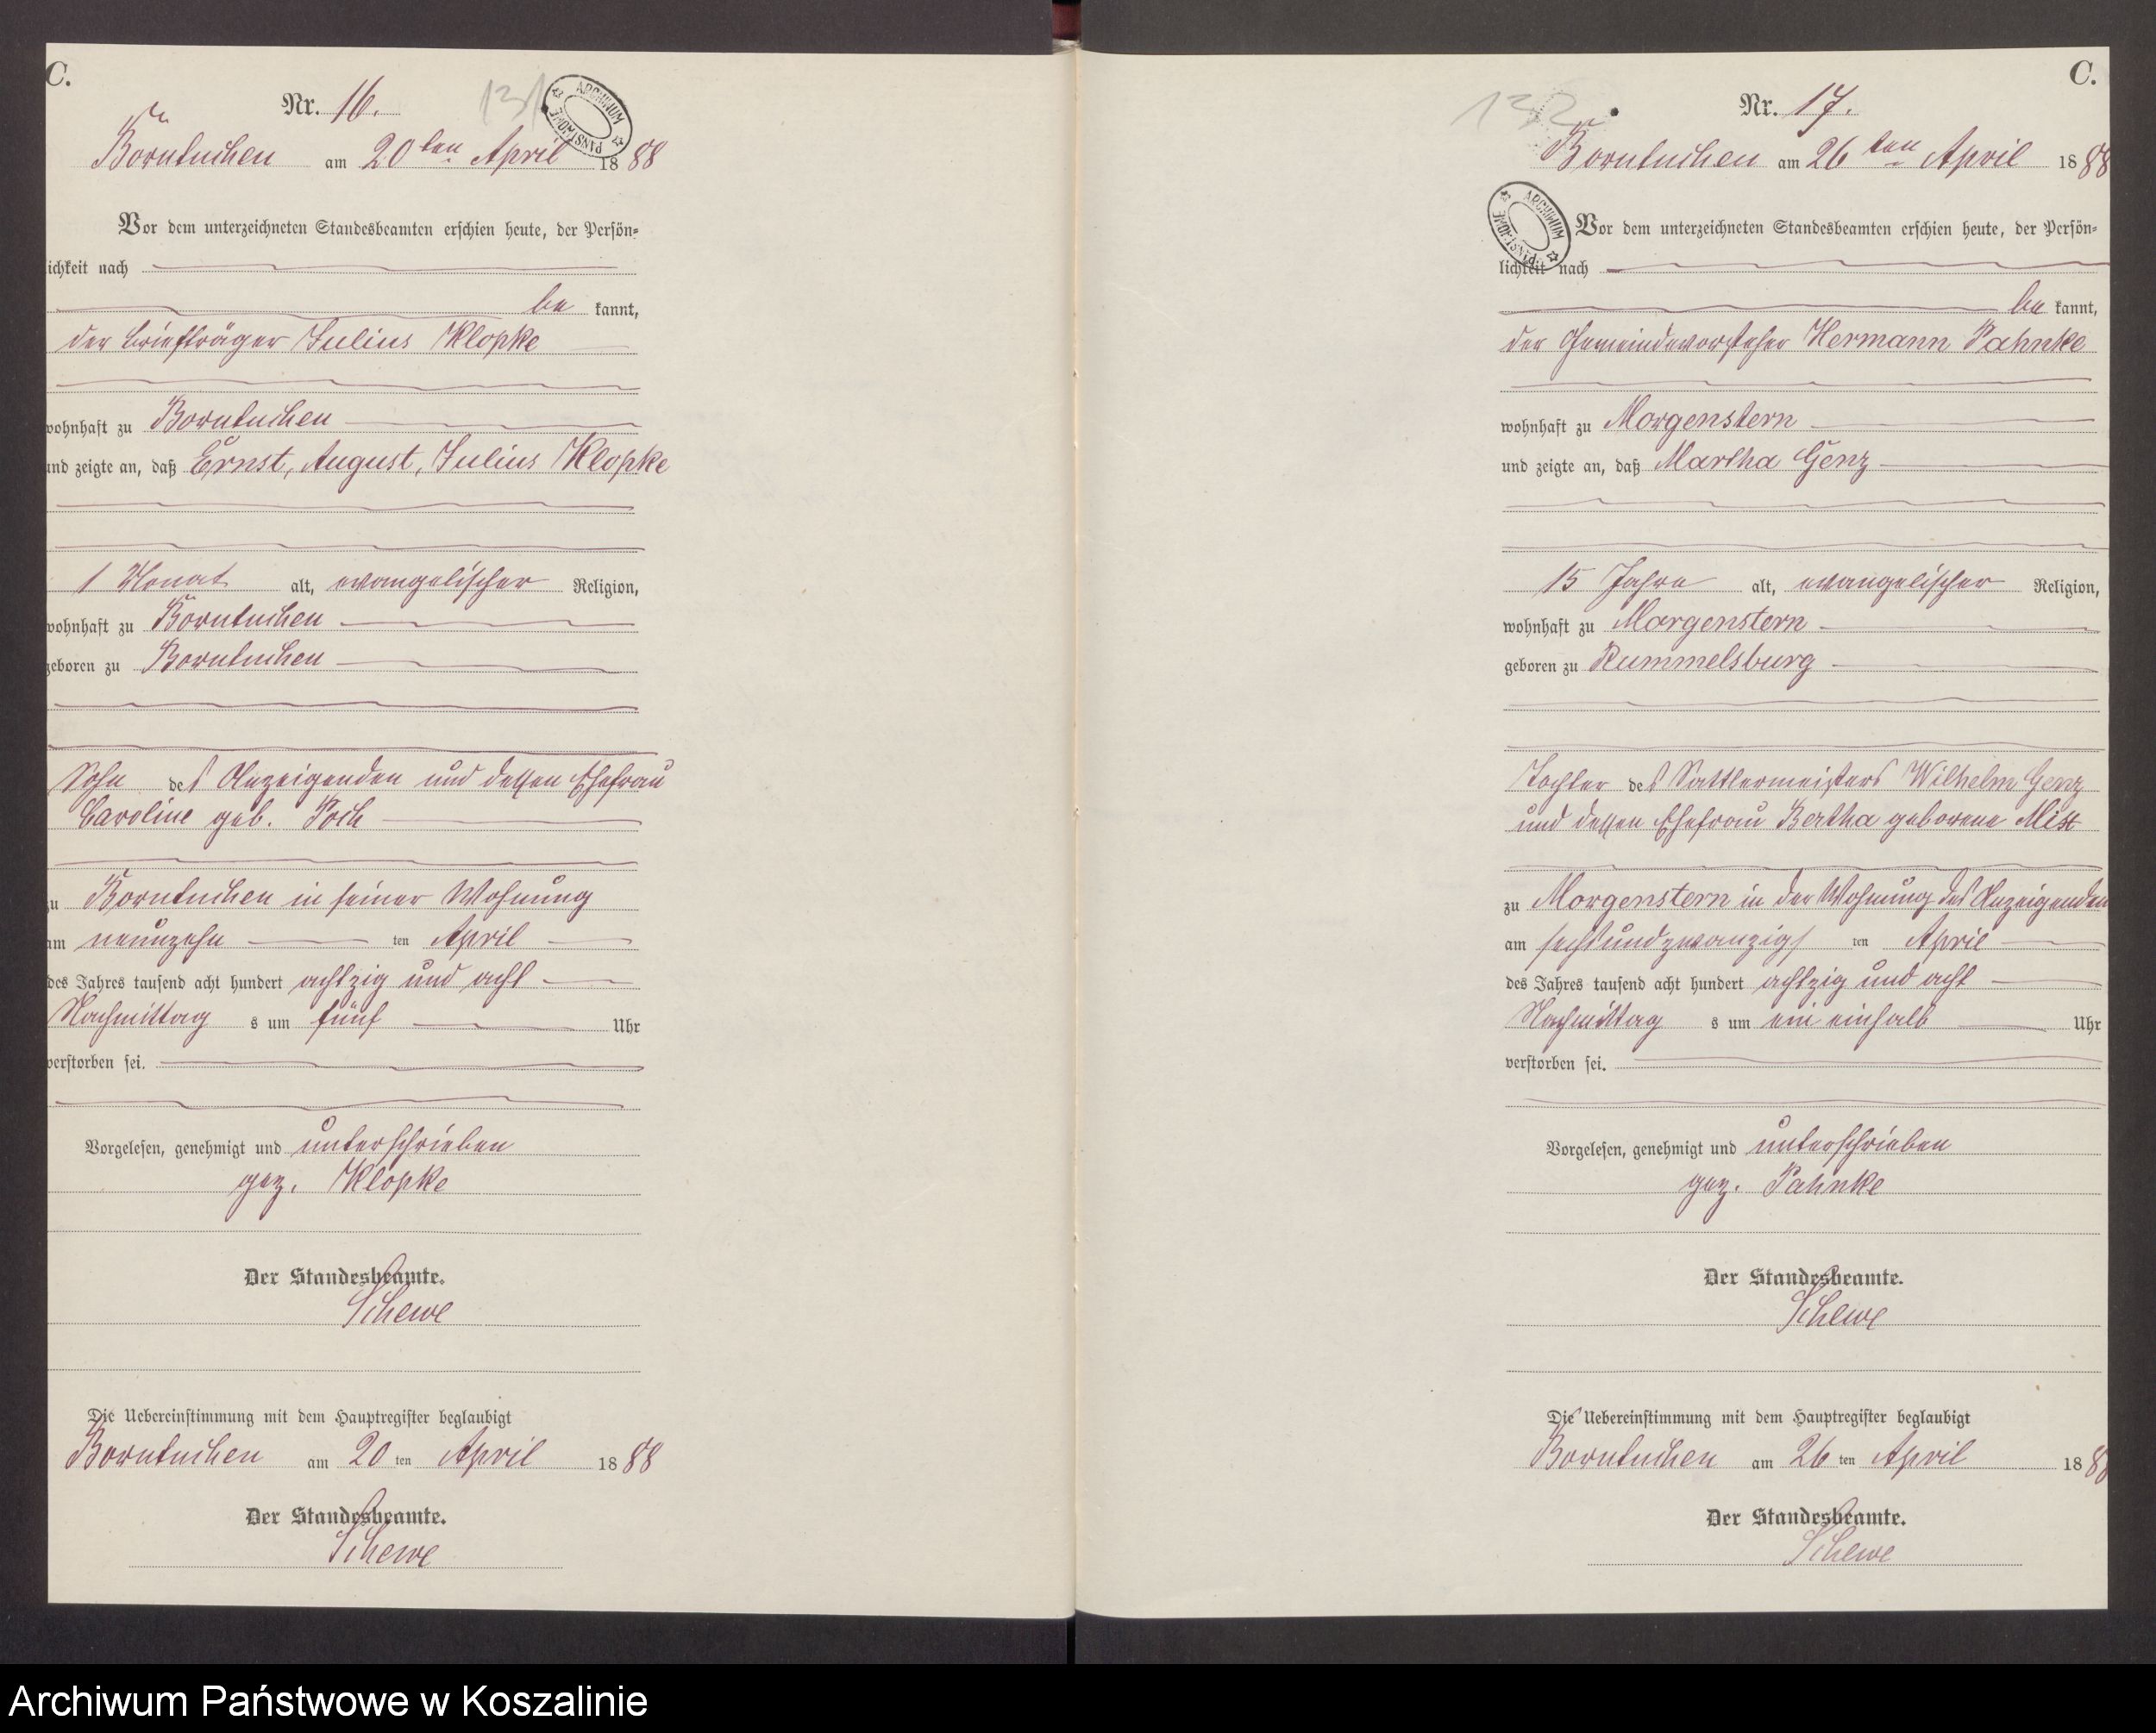 C.
Nr. 16.
131
ARCHIWUM PAŃSTWOWE
Borntuchen am 20ten April 1888
Vor dem unterzeichneten Standesbeamten erschien heute, der Persön-
ichkeit nach
be kannt,
der Briefträger Julius Klopke
wohnhaft zu Borntuchen
und zeigte an, daß Ernst, August, Julius Klopke
1 Monat alt, evangelischer Religion,
wohnhaft zu Borntuchen
geboren zu Borntuchen
Sohn des Anzeigenden und dessen Ehefrau
Caroline geb. Poch
zu Borntuchen in seiner Wohnung
am neunzehn ten April
des Jahres tausend acht hundert achtzig und acht
Nachmittag s um fünf Uhr
verstorben sei.
Vorgelesen, genehmigt und unterschrieben
gez. Klopke
Der Standesbeamte.
Schewe
Die Uebereinstimmung mit dem Hauptregister beglaubigt
Borntuchen am 20 ten April 1888
Der Standesbeamte.
Schewe
C.
Nr. 17.
132
Borntuchen am 26ten April 1888
ARCHIWUM PAŃSTWOWE
Vor dem unterzeichneten Standesbeamten erschien heute, der Persön-
lichkeit nach
be kannt,
der Gemeindevorsteher Hermann Pahnke
wohnhaft zu Morgenstern
und zeigte an, daß Martha Genz
15 Jahre alt, evangelischer Religion,
wohnhaft zu Morgenstern
geboren zu Rummelsburg
Tochter des Sattlermeisters Wilhelm Genz
und dessen Ehefrau Bertha geborene
zu Morgenstern in der Wohnung des Anzeigenden
am sechsundzwanzigs ten April
des Jahres tausend acht hundert achtzig und acht
Nachmittag s um ein einhalb Uhr
verstorben sei.
Vorgelesen, genehmigt und unterschrieben
gez. Pahnke
Der Standesbeamte.
Schewe
Die Uebereinstimmung mit dem Hauptregister beglaubigt
Borntuchen am 26 ten April 1888
Der Standesbeamte.
Schewe
Archiwum Państwowe w Koszalinie